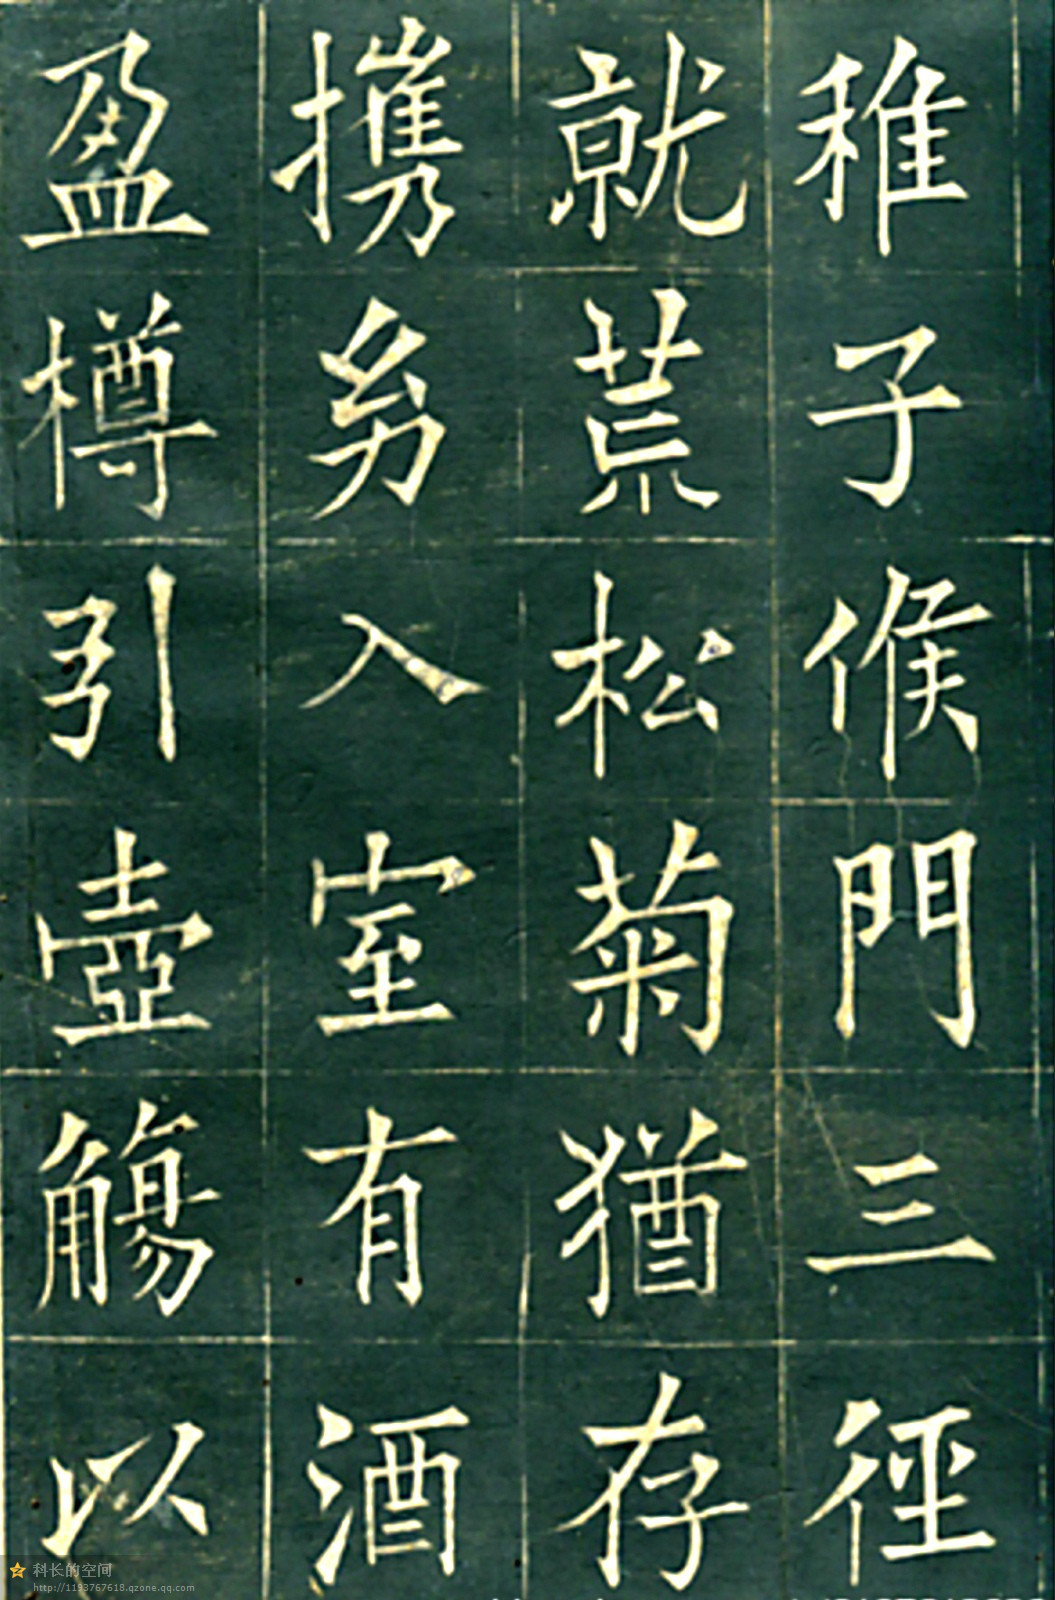 稚子候門三徑
就荒松菊猶存
攜㓜入室有酒
盈樽引壺觴以
科长的空间
http://1193767618.qzone.qq.com